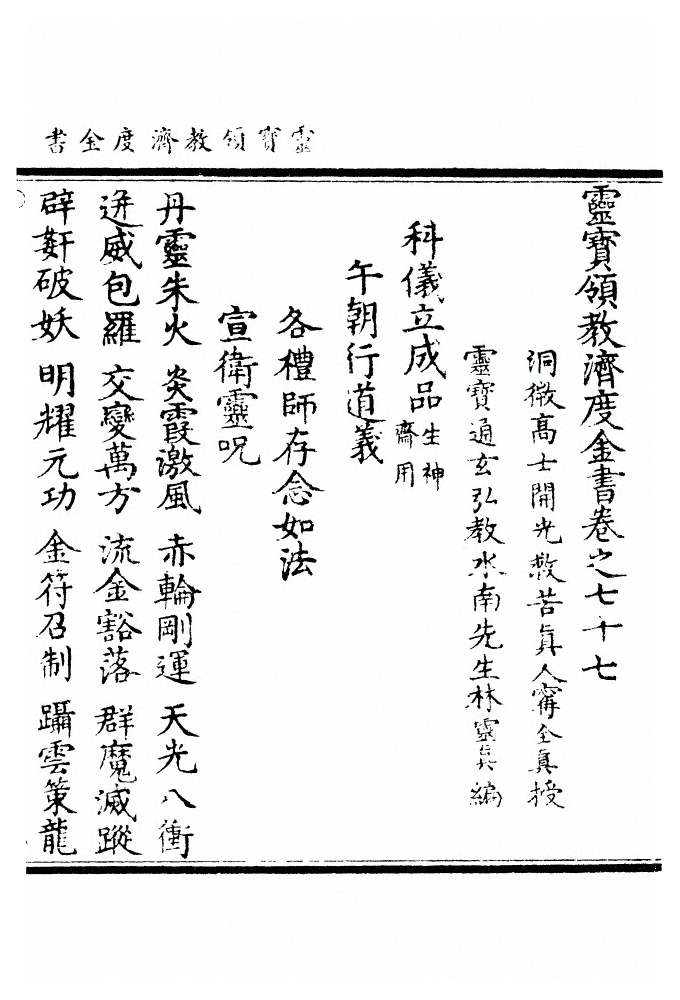 靈寶領教濟度金書
靈寶領教濟度金書卷之七十七
洞微高士開光救苦真人甯全真授
靈寶通玄弘教水南先生林靈真編
科儀立成品 生神齋用
午朝行道義
各禮師存念如法
宣衛靈呪
丹靈朱火 炎霞激風 赤輪剛運 天光八衝
迸威包羅 交變萬方 流金豁落 群魔滅蹤
辟姧破妖 明耀元功 金符召制 躡雲策龍